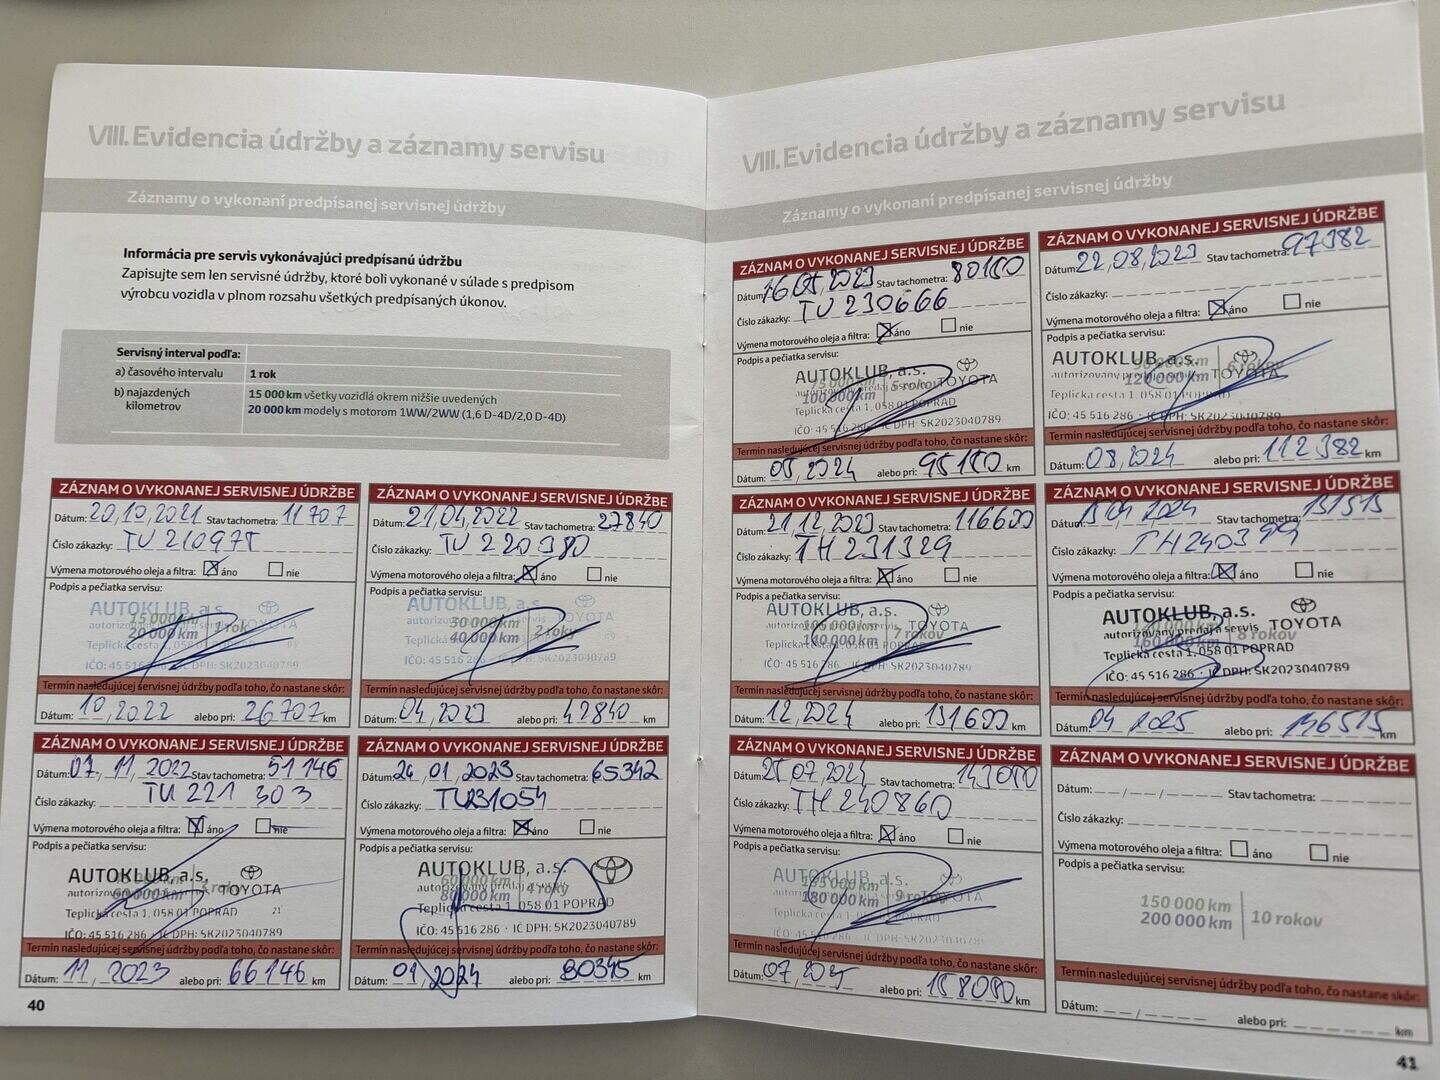 VIII. Evidencia údržby a záznamy servisu
Záznamy o vykonaní predpísanej servisnej údržby
Informácia pre servis vykonávajúci predpísanú údržbu
Zapisujte sem len servisné údržby, ktoré boli vykonané v súlade s predpisom
výrobcu vozidla v plnom rozsahu všetkých predpísaných úkonov.
Servisný interval podľa:
a) časového intervalu 1 rok
b) najazdených kilometrov
15 000 km všetky vozidlá okrem nižšie uvedených
20 000 km modely s motorom 1WW/2WW (1,6 D-4D/2,0 D-4D)
ZÁZNAM O VYKONANEJ SERVISNEJ ÚDRŽBE
Dátum: 20,10,2021 Stav tachometra: 11707
Číslo zákazky: TU 210975
Výmena motorového oleja a filtra: áno nie
Podpis a pečiatka servisu:
AUTOKLUB, a.s.
15 000 km
20 000 km 1 rok TOYOTA
Teplická cesta 1, 058 01 POPRAD
IČO: 45 516 286 · IČ DPH: SK2023040789
Termín nasledujúcej servisnej údržby podľa toho, čo nastane skôr:
Dátum: 10,2022 alebo pri: 26707 km
ZÁZNAM O VYKONANEJ SERVISNEJ ÚDRŽBE
Dátum: 21,04,2022 Stav tachometra: 27840
Číslo zákazky: TU 220380
Výmena motorového oleja a filtra: áno nie
Podpis a pečiatka servisu:
AUTOKLUB, a.s.
30 000 km
40 000 km 2 roky TOYOTA
Teplická
IČO: 45 516 286 · IČ DPH: SK2023040789
Termín nasledujúcej servisnej údržby podľa toho, čo nastane skôr:
Dátum: 04,2023 alebo pri: 42840 km
ZÁZNAM O VYKONANEJ SERVISNEJ ÚDRŽBE
Dátum: 07,11,2022 Stav tachometra: 51146
Číslo zákazky: TU 221 303
Výmena motorového oleja a filtra: áno nie
Podpis a pečiatka servisu:
AUTOKLUB, a.s.
60 000 km roky TOYOTA
Teplická cesta 1, 058 01 POPRAD 21
IČO: 45 516 286 · IČ DPH: SK2023040789
Termín nasledujúcej servisnej údržby podľa toho, čo nastane skôr:
Dátum: 11,2023 alebo pri: 66146 km
ZÁZNAM O VYKONANEJ SERVISNEJ ÚDRŽBE
Dátum: 24,01,2023 Stav tachometra: 65342
Číslo zákazky: TU231054
Výmena motorového oleja a filtra: áno nie
Podpis a pečiatka servisu:
AUTOKLUB, a.s.
60 000 km
80 000 km 4 roky
Teplická cesta 1, 058 01 POPRAD
IČO: 45 516 286 · IČ DPH: SK2023040789
Termín nasledujúcej servisnej údržby podľa toho, čo nastane skôr:
Dátum: 01,2024 alebo pri: 80345 km
40
VIII. Evidencia údržby a záznamy servisu
Záznamy o vykonaní predpísanej servisnej údržby
ZÁZNAM O VYKONANEJ SERVISNEJ ÚDRŽBE
Dátum: 16,05,2023 Stav tachometra: 80150
Číslo zákazky: TU 230666
Výmena motorového oleja a filtra: áno nie
Podpis a pečiatka servisu:
AUTOKLUB, a.s.
75 000 km
100 000 km 5 rokov TOYOTA
Teplická cesta 1, 058 01 POPRAD
IČO: 45 516 286 · IČ DPH: SK2023040789
Termín nasledujúcej servisnej údržby podľa toho, čo nastane skôr:
Dátum: 05,2024 alebo pri: 95150 km
ZÁZNAM O VYKONANEJ SERVISNEJ ÚDRŽBE
Dátum: 22,08,2023 Stav tachometra: 97382
Číslo zákazky:
Výmena motorového oleja a filtra: áno nie
Podpis a pečiatka servisu:
AUTOKLUB, a.s.
autorizovaný predaj a servis
90 000 km
120 000 km 6 rokov TOYOTA
Teplická cesta 1, 058 01 POPRAD
IČO: 45 516 286 · IČ DPH: SK2023040789
Termín nasledujúcej servisnej údržby podľa toho, čo nastane skôr:
Dátum: 08,2024 alebo pri: 112382 km
ZÁZNAM O VYKONANEJ SERVISNEJ ÚDRŽBE
Dátum: 21,12,2023 Stav tachometra: 116600
Číslo zákazky: TH231329
Výmena motorového oleja a filtra: áno nie
Podpis a pečiatka servisu:
AUTOKLUB, a.s.
105 000 km
140 000 km 7 rokov TOYOTA
Teplická cesta 1, 058 01 POPRAD
IČO: 45 516 286 · IČ DPH: SK2023040789
Termín nasledujúcej servisnej údržby podľa toho, čo nastane skôr:
Dátum: 12,2024 alebo pri: 131600 km
ZÁZNAM O VYKONANEJ SERVISNEJ ÚDRŽBE
Dátum: 04,2024 Stav tachometra: 131515
Číslo zákazky: TH240399
Výmena motorového oleja a filtra: áno nie
Podpis a pečiatka servisu:
AUTOKLUB, a.s.
autorizovaný predaj a servis TOYOTA
160 000 km 8 rokov
Teplická cesta 1, 058 01 POPRAD
IČO: 45 516 286 · IČ DPH: SK2023040789
Termín nasledujúcej servisnej údržby podľa toho, čo nastane skôr:
Dátum: 04,2025 alebo pri: 146515 km
ZÁZNAM O VYKONANEJ SERVISNEJ ÚDRŽBE
Dátum: 25,07,2024 Stav tachometra: 143080
Číslo zákazky: TH 240860
Výmena motorového oleja a filtra: áno nie
Podpis a pečiatka servisu:
AUTOKLUB, a.s.
135 000 km
180 000 km 9 rokov TOYOTA
Teplická cesta 1, 058 01 POPRAD
IČO: 45 516 286 · IČ DPH: SK2023040789
Termín nasledujúcej servisnej údržby podľa toho, čo nastane skôr:
Dátum: 07,2025 alebo pri: 158080 km
ZÁZNAM O VYKONANEJ SERVISNEJ ÚDRŽBE
Dátum: / / Stav tachometra:
Číslo zákazky:
Výmena motorového oleja a filtra: áno nie
Podpis a pečiatka servisu:
150 000 km
200 000 km 10 rokov
Termín nasledujúcej servisnej údržby podľa toho, čo nastane skôr:
Dátum: / alebo pri: km
41